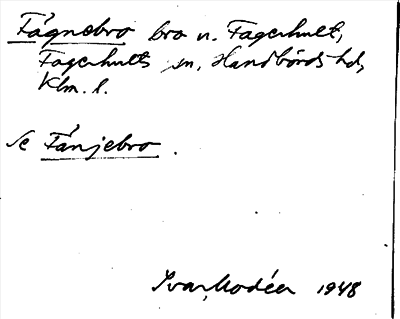 Fågnebro bro n. Fagerhult,
Fagerhults sn, Handbörds hd,
Klm. l.
Se Fånjebro.
Ivar Modéer 1948